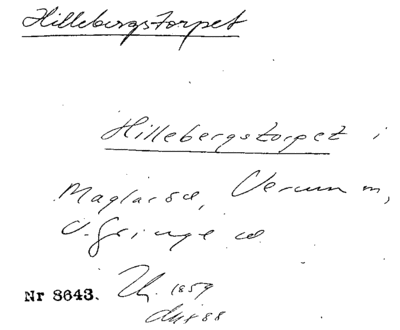 Hillebergstorpet
Hillebergstorpet i
Maglarød, Verum m,
V. Göinge
Nr 8643. 1859